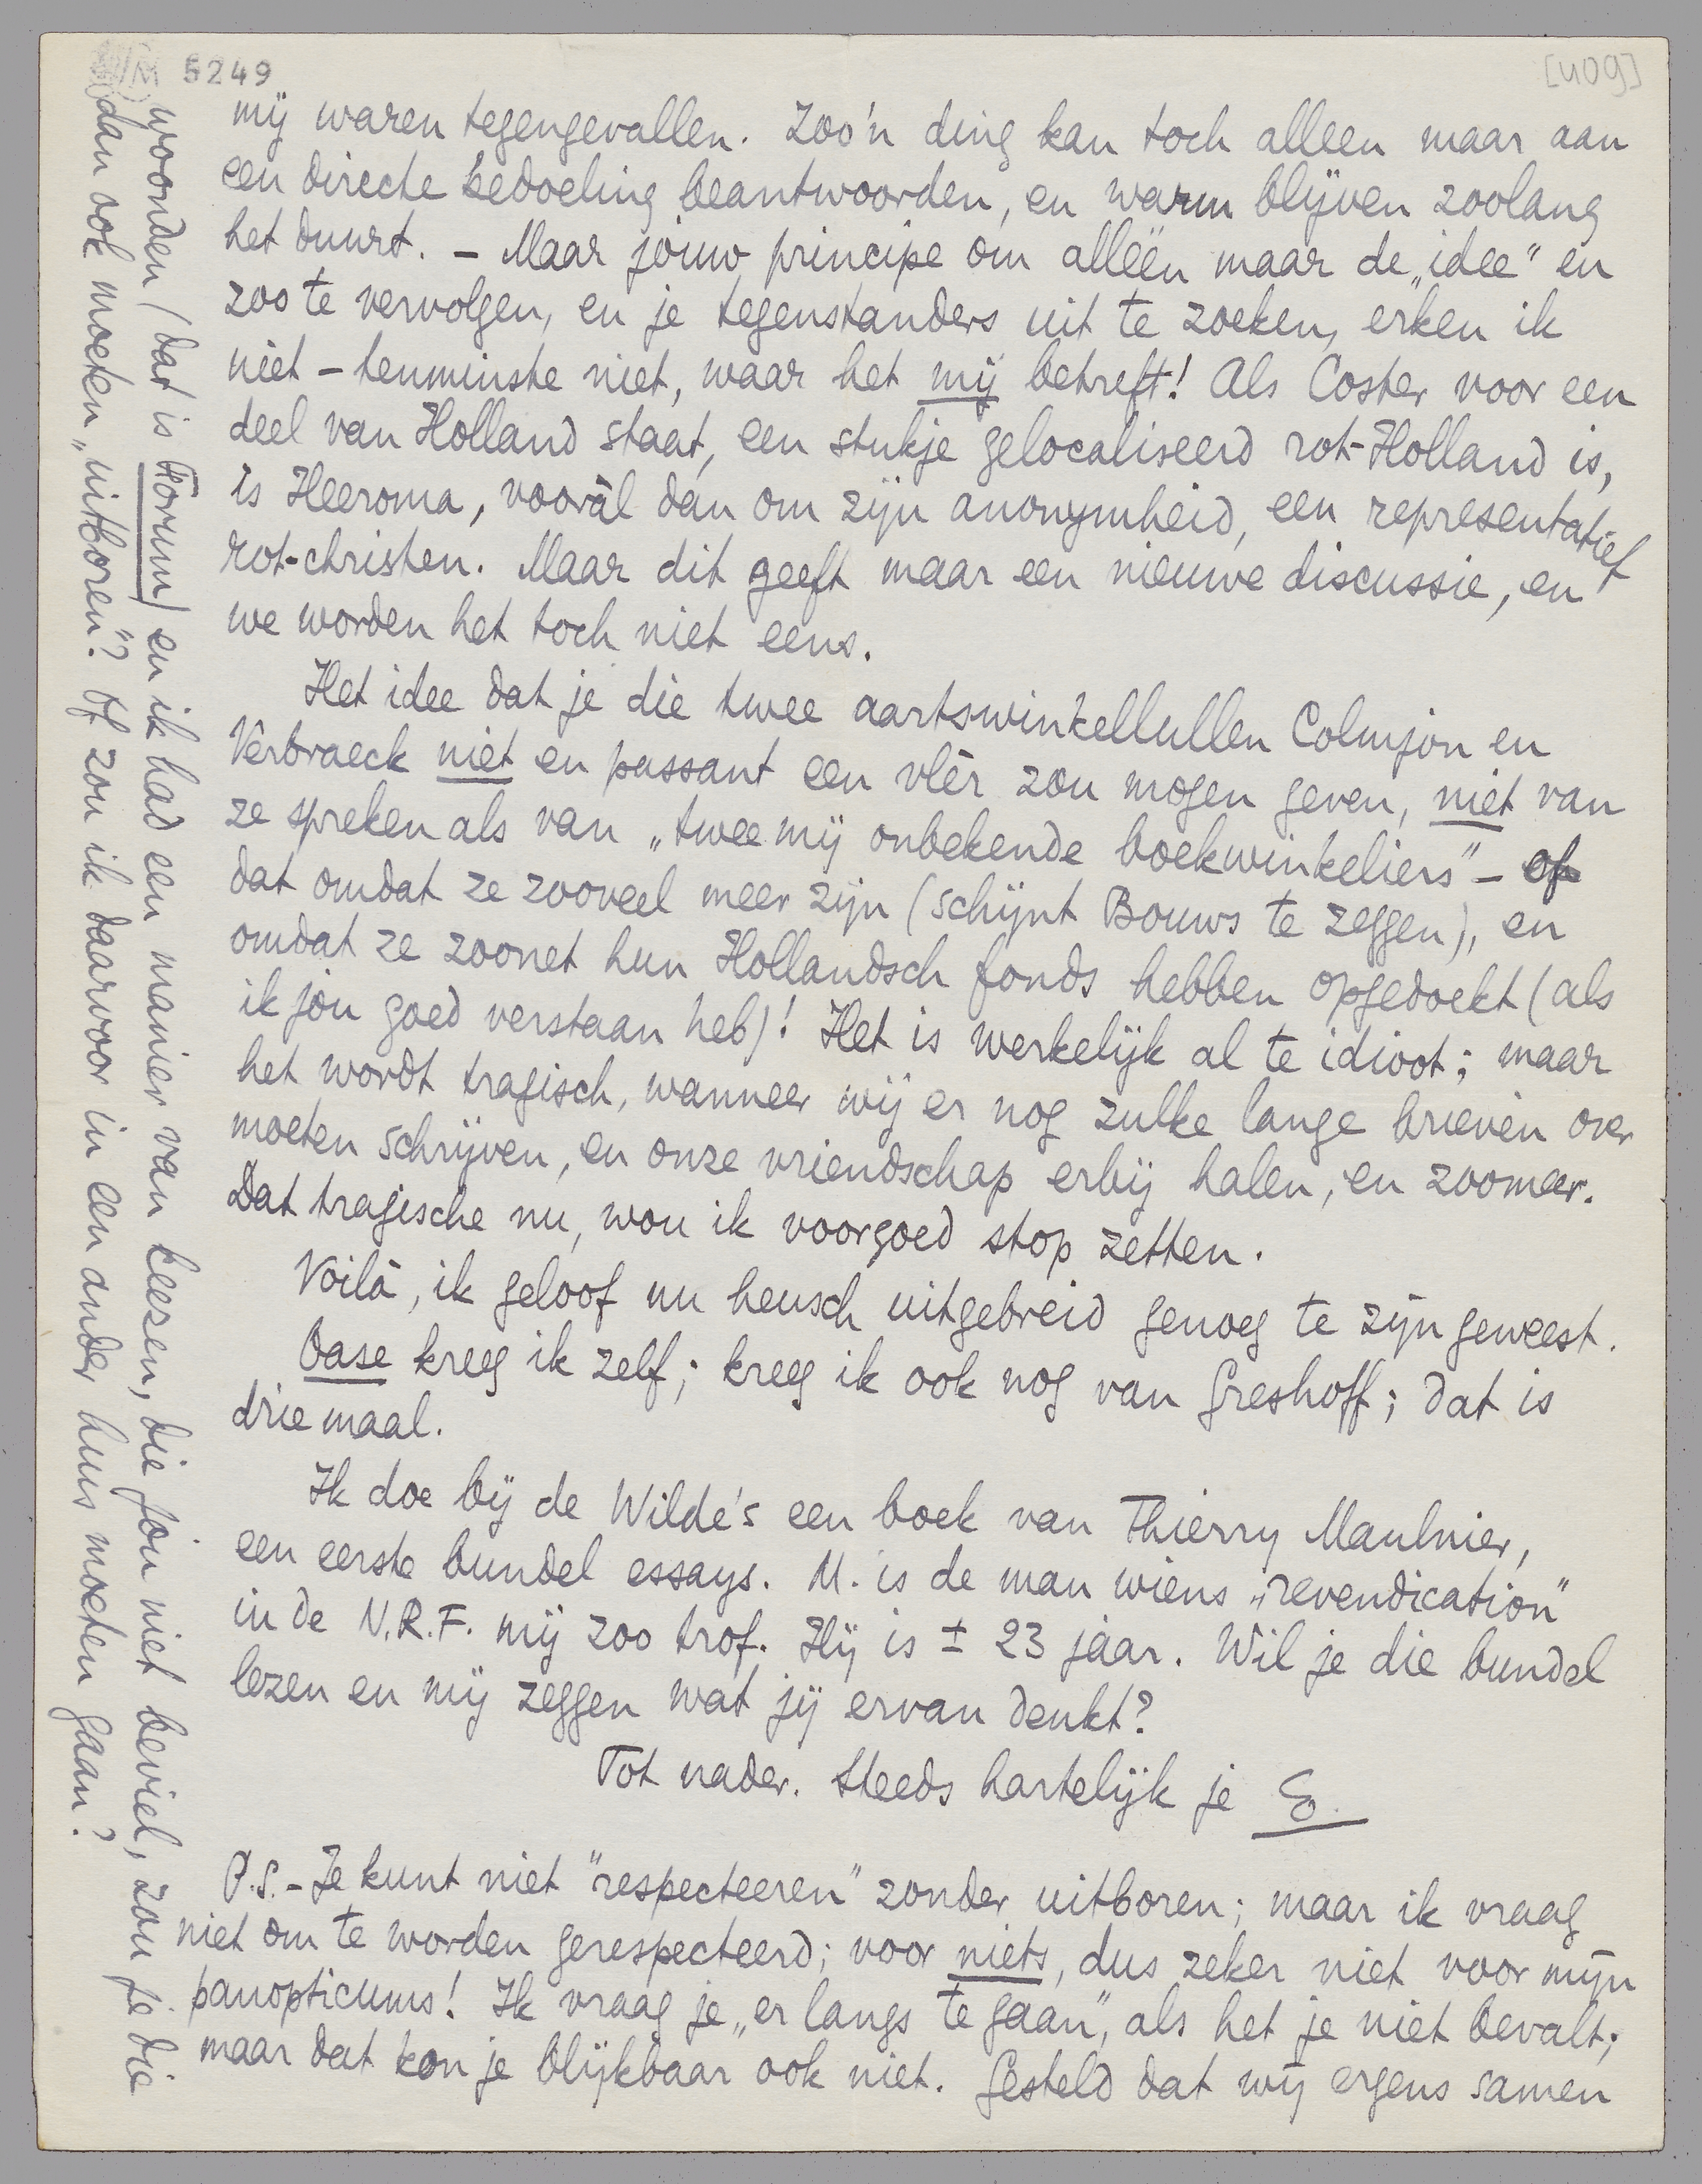 5249
[409]
mij waren tegengevallen. Zoo'n ding kan toch alleen maar aan
een directe bedoeling beantwoorden, en warm blijven zoolang
het duurt. – Maar jouw principe om alléén maar de „idee" en
zoo te vervolgen, en je tegenstanders uit te zoeken, erken ik
niet – tenminste niet, waar het mij betreft! Als Coster voor een
deel van Holland staat, een stukje gelocaliseerd rot-Holland is,
is Heeroma, vooràl dan om zijn anonymheid, een representatief
rot-christen. Maar dit geeft maar een nieuwe discussie, en
we worden het toch niet eens.
Het idee dat je die twee aartswinkellullen Colmjon en
Verbraeck niet en passant een vlèr zou mogen geven, niet van
ze spreken als van „twee mij onbekende boekwinkeliers" – of
dat omdat ze zooveel meer zijn (schijnt Bouws te zeggen), en
omdat ze zoonet hun Hollandsch fonds hebben opgedoekt (als
ik jou goed verstaan heb)! Het is werkelijk al te idioot; maar
het wordt tragisch, wanneer wij er nog zulke lange brieven over
moeten schrijven, en onze vriendschap erbij halen, en zoomeer.
Dat tragische nu, wou ik voorgoed stop zetten.
Voilà, ik geloof nu heusch uitgebreid genoeg te zijn geweest.
Oase kreeg ik zelf; kreeg ik ook nog van Greshoff; dat is
driemaal.
Ik doe bij de Wilde's een boek van Thierry Maulnier,
een eerste bundel essays. M. is de man wiens „revendication"
in de N.R.F. mij zoo trof. Hij is ± 23 jaar. Wil je die bundel
lezen en mij zeggen wat jij ervan denkt?
Tot nader. Steeds hartelijk je
P.S. – Je kunt niet "respecteeren" zonder uitboren; maar ik vraag
niet om te worden gerespecteerd; voor niets, dus zeker niet voor mijn
panopticums! Ik vraag je „er langs te gaan", als het je niet bevalt;
maar dat kon je blijkbaar ook niet. Gesteld dat wij ergens samen
woonden (dat is Forum) en ik had een manier van keezen, die jou niet beviel, zou je die
dan ook moeten „uitboren"? Of zou ik daarvoor in een ander huis moeten gaan?